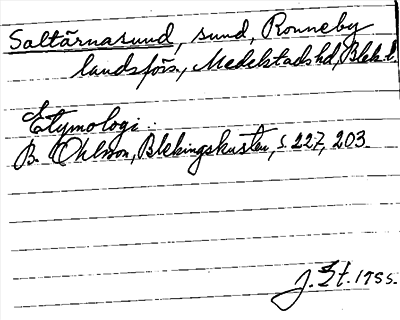 Saltärnasund, sund, Ronneby
landsförs., Medelstads hd, Blek. l.
Etymologi:
B. Ohlsson, Blekingskusten, s. 227, 203.
J. St. 1955.